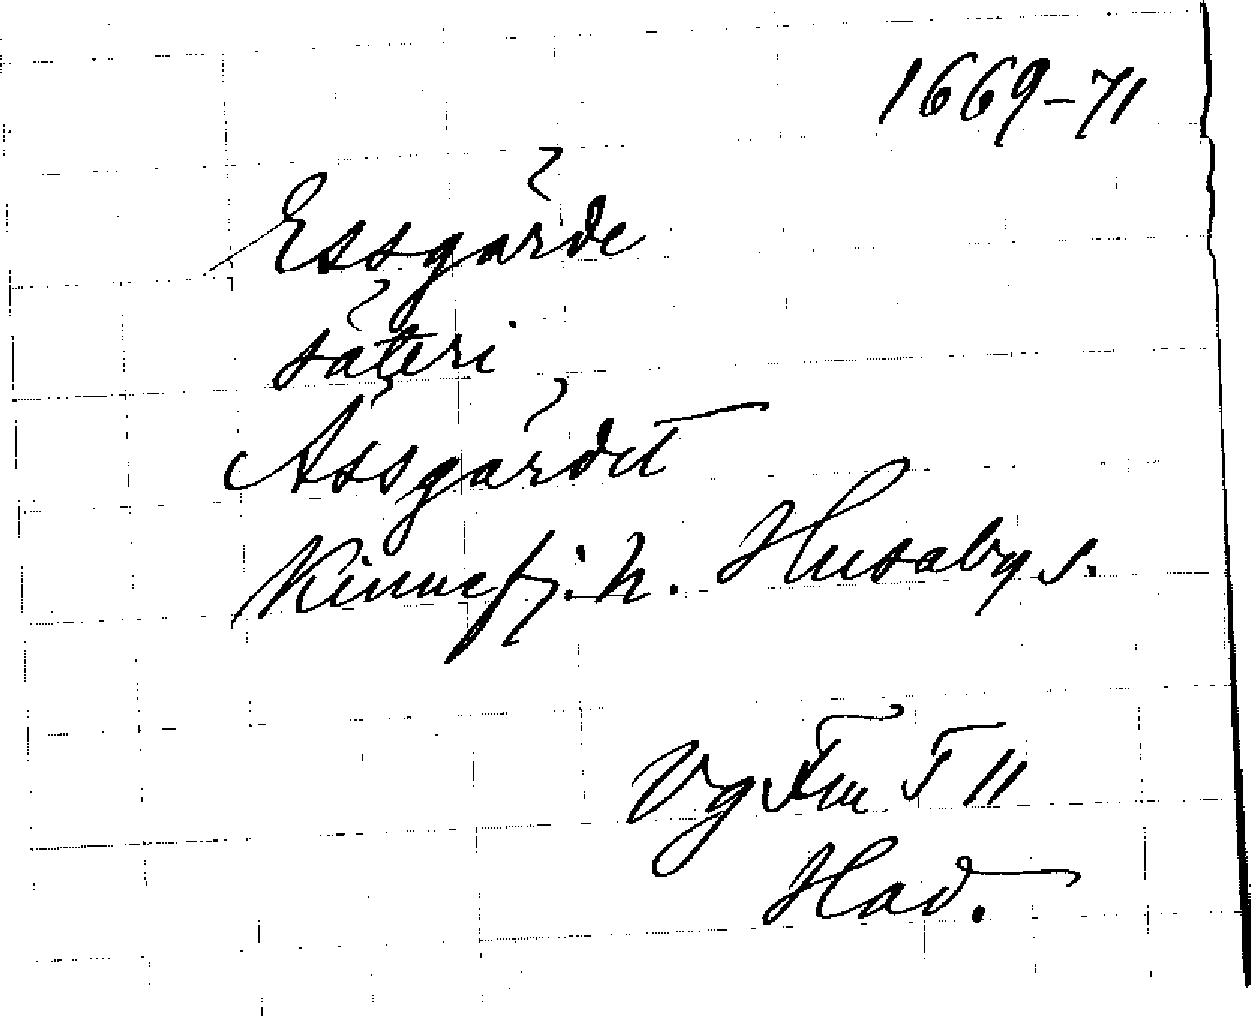 1669-71
Essgärde
säteri
Ässgärdet
Kinnefj. h. Husaby s.
Vg Fm T 11
Had.